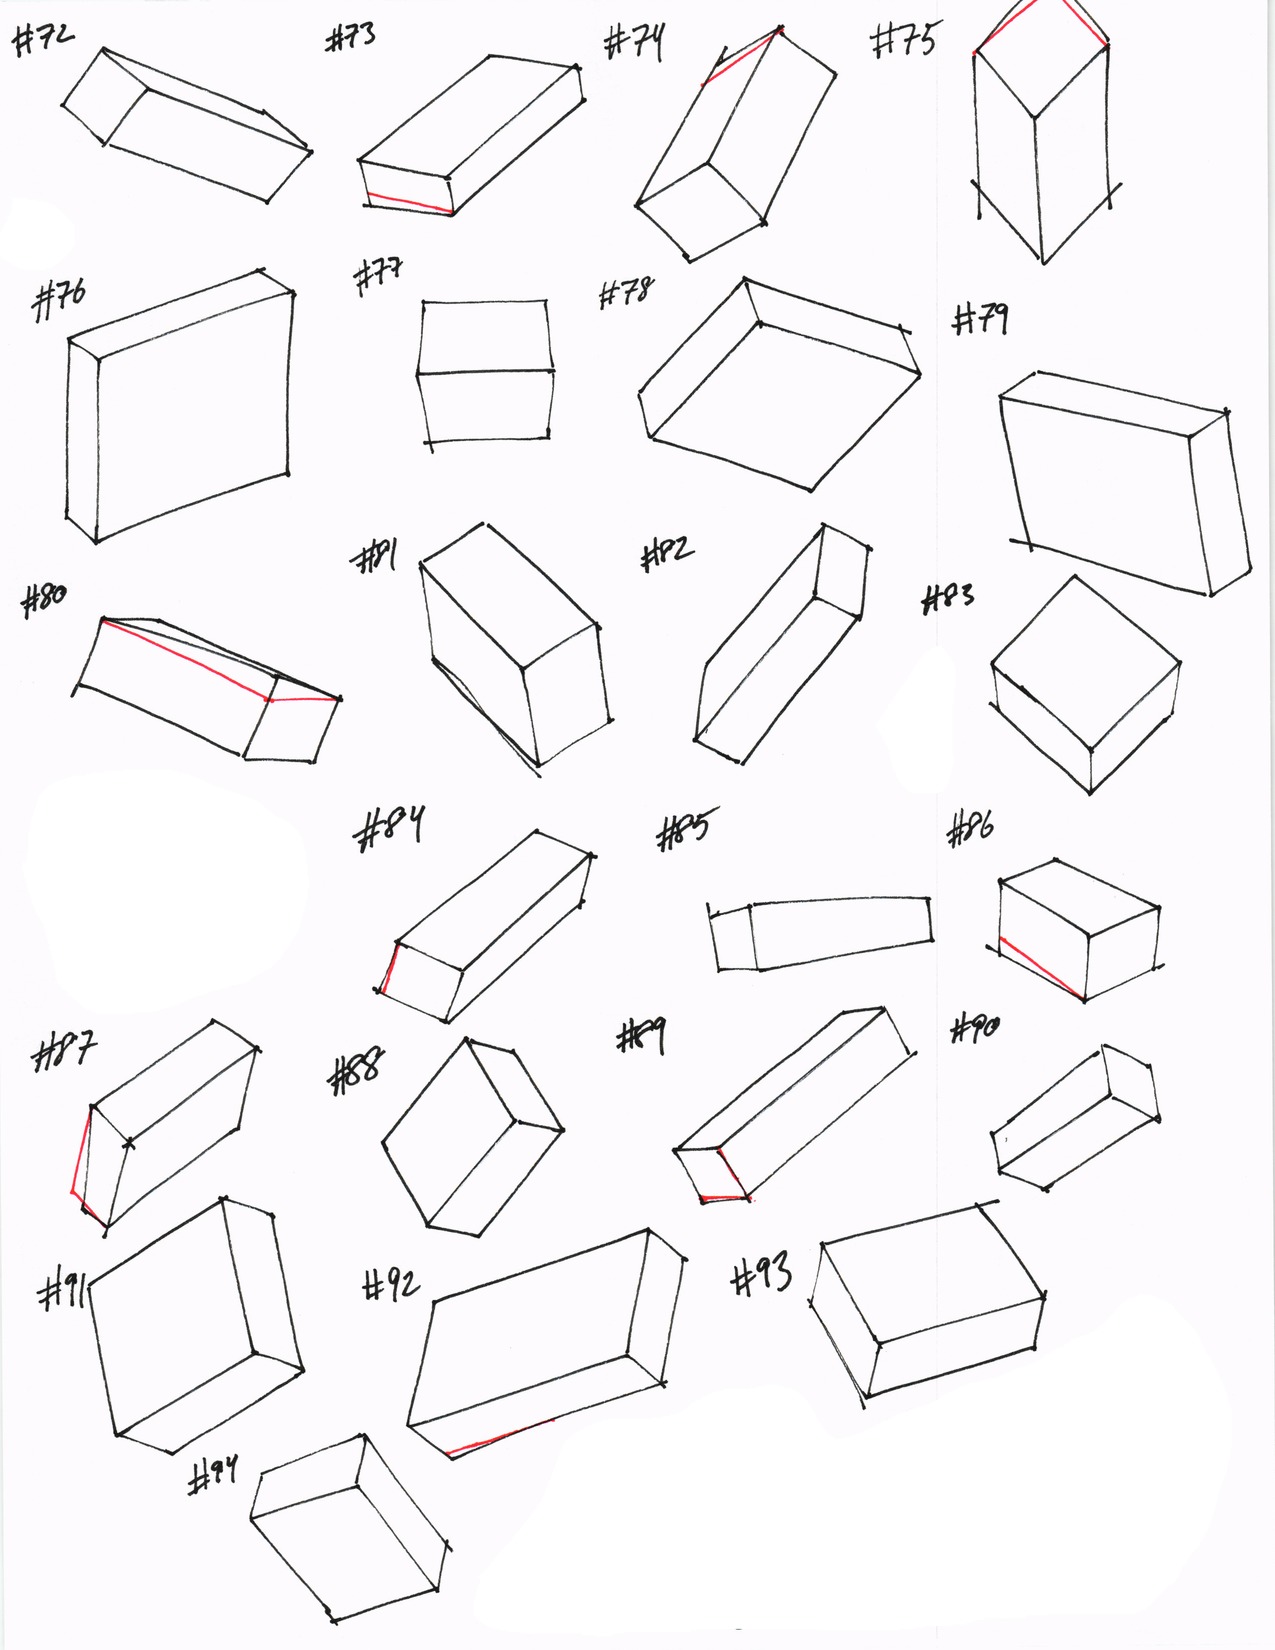 #72
#73
#74
#75
#76
#77
#78
#79
#80
#81
#82
#83
#84
#85
#86
#87
#88
#89
#90
#91
#92
#93
#94